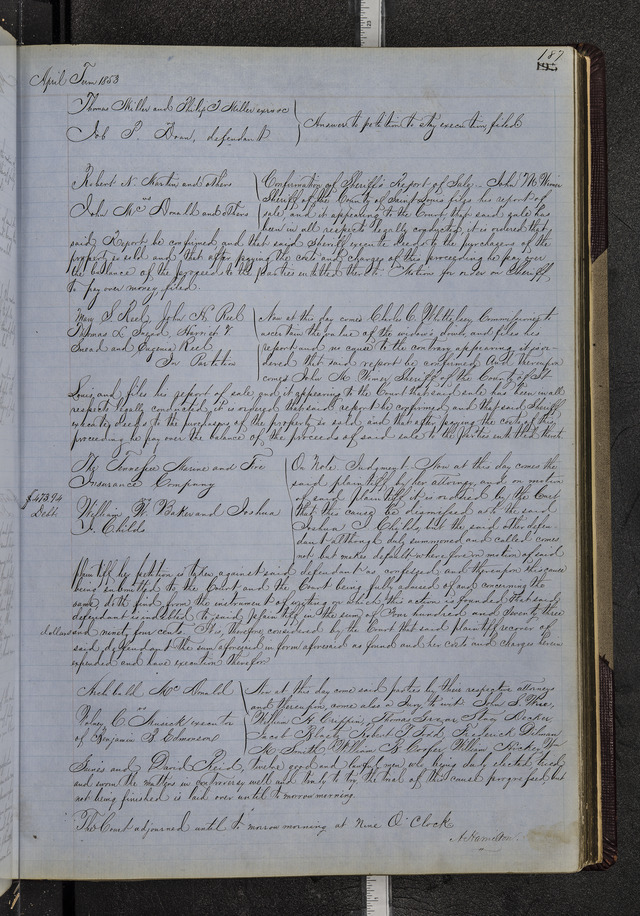 187
195
April Term 1853
Thomas Miller and Philip T Miller exrs &c
Job P. Doan, defendant
Answer to petition to stay execution filed
Robert N. Martin and others
vs
John Mc Donald and others
Confirmation of Sheriff's Report of Sale. John M Wimer
Sheriff of the County of Saint Louis files his report of
sale, and it appearing to the Court that said sale has
been in all respects legally conducted, it is ordered that
said Report be confirmed and that said Sheriff execute deeds to the purchasers of the
property so sold and that after paying the costs and charges of this proceeding he pay over
the balance of the proceeds to the parties entitled thereto. Motion for order on Sheriff
to pay over money filed.
Mary S Reel, John H Reel
Thomas L Snead, Harriet V
Snead and Eugenia Reel
In Partition
Now at this day comes Charles C. Whittlesey, Commissioner to
ascertain the value of the widow's dower, and files his
report, and no cause to the contrary appearing it is or-
dered that said report be confirmed And thereupon
comes John M. Wimer Sheriff of the County of St
Louis, and files his report of sale, and it appearing to the Court that said sale has been in all
respects legally conducted, it is ordered that said report be confirmed and that said Sheriff
execute deeds to the purchasers of the property so sold, and that after paying the costs of this
proceeding he pay over the balance of the proceeds of said sale to the Parties entitled thereto.
The Tennessee Marine and Fire
Insurance Company
vs
$473.94
Debt.
William W Baker and Joshua
J. Childs
On Note Judgment. Now at this day comes the
said plaintiff by her attorney, and on motion
of said plaintiff it is ordered by the Court
that this cause be dismissed as to the said
Joshua J Childs, but the said other defen-
dant although duly summoned and called comes
not but makes default, wherefore on motion of said
Plaintiff her petition is taken against said defendant as confessed, and thereupon this cause
being submitted to the Court, and the Court being fully advised of and concerning the
same doth find from the instrument of writing on which this action is founded that said
defendant is indebted to said plaintiff in the sum of Four hundred and seventy three
dollars and ninety four cents. It is, therefore, considered by the Court that said plaintiff recover of
said defendant the sum aforesaid in form aforesaid as found and her costs and charges herein
expended and have execution therefor.
Archibald Mc Donald
vs
C. Musick executor
of Benjamin B. Edmonson
Now at this day come said parties by their respective attorneys
and thereupon, come also a Jury, to wit: John S. Wise,
William H Griffin, Thomas
Jacob Black, Robert J Todd, Frederick
Smith, William B Cooper, William Hickey, Wm
and David Reid, twelve good and lawful men, who being duly elected tried,
and sworn the matters in controversy well and truly to try the trial of this cause progressed but
not being finished is laid over until to morrow morning.
The Court adjourned until to morrow morning at Nine O'Clock
A Hamilton